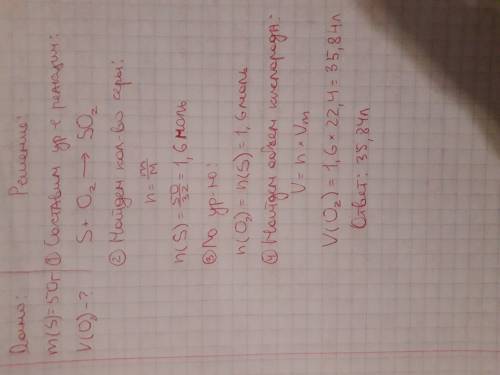 Дано:
m(S)=50г
V(O₂)-?
Решение:
① Составим ур-е реакции:
S + O₂ → SO₂
② Найдем кол-во серы:
n = m/M
n(S) = 50/32 = 1,6 моль
③ По ур-ю:
n(O₂) = n(S) = 1,6 моль
④ Найдем объем кислорода:
V = n × Vm
V(O₂) = 1,6 × 22,4 = 35,84л
Ответ: 35,84л